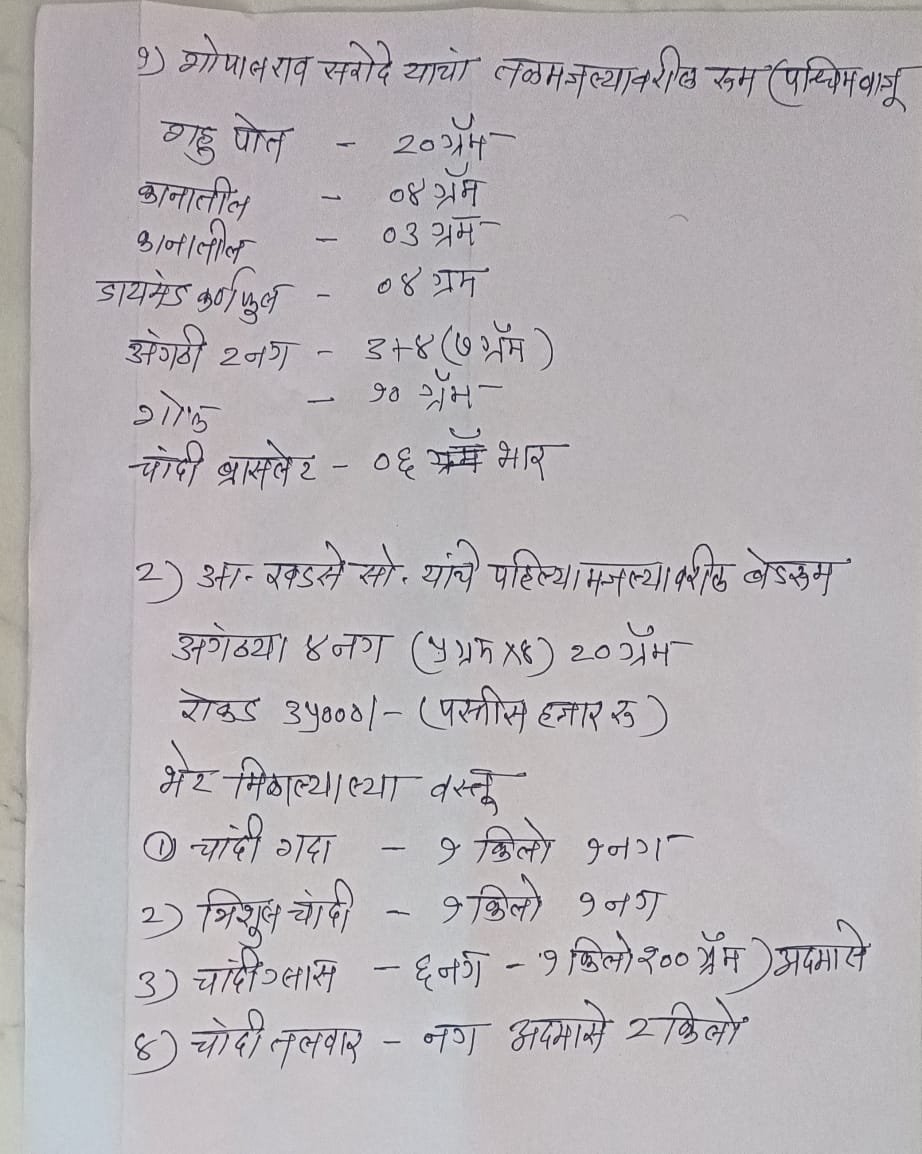 १) गोपालराव सरोदे यांचा तळमजल्यावरील रूम (पश्चिम बाजू
गहु पोत - २० ग्रॅम
कानातील - ०४ ग्रॅम
कानातील - ०३ ग्रॅम
डायमंड कर्णफुल - ०४ ग्रम
अंगठी २ नग - ३+४ (७ ग्रॅम)
गोफ - १० ग्रॅम
चांदी ब्रासलेट - ०६ भार
२) आ. खडसे सो. यांचे पहिल्या मजल्यावरील बेडरूम
अगंठ्या ४ नग (५ ग्रम x४) २० ग्रॅम
रोकड ३५०००/- (पस्तीस हजार रु)
भेट मिळाल्याल्या वस्तू
① चांदी गदा - १ किलो १ नग
२) त्रिशूल चांदी - १ किलो १ नग
३) चांदी ग्लास - ६ नग - १ किलो २०० ग्रॅम) अदमासे
४) चांदी तलवार - नग अदमासे २ किलो